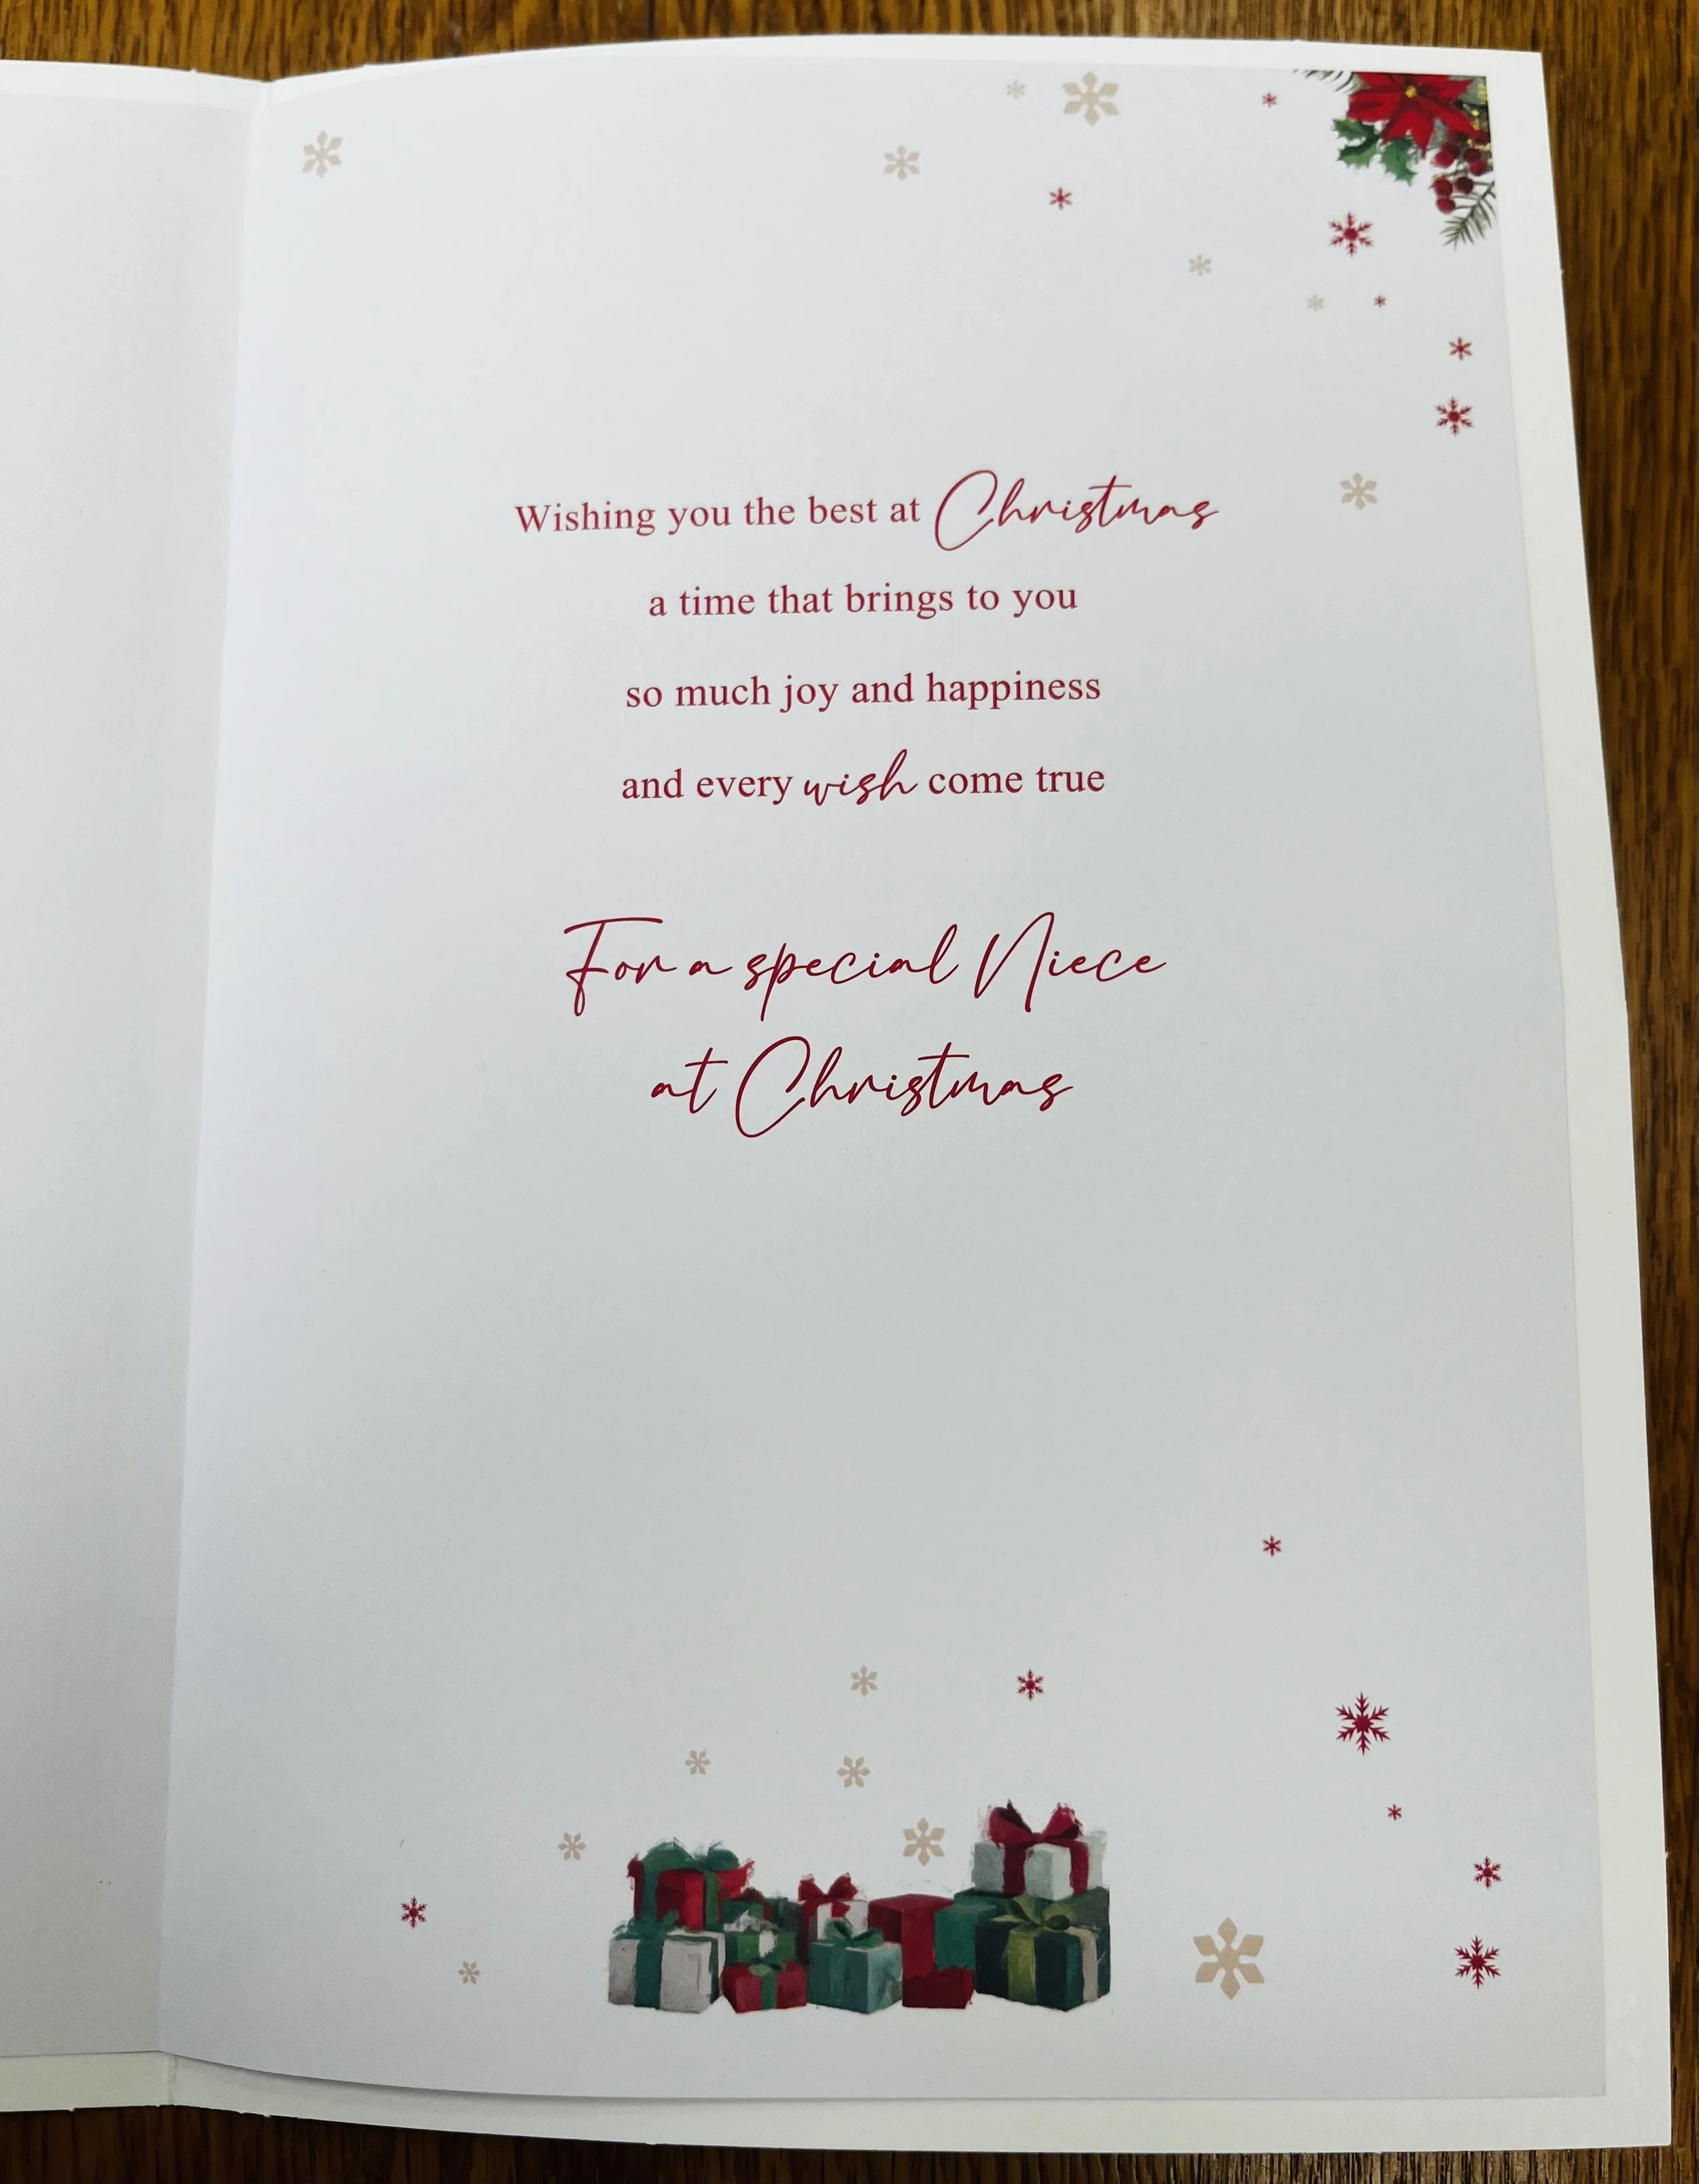 Wishing you the best at Christmas
a time that brings to you
so much joy and happiness
and every wish come true
For a special Niece
at Christmas